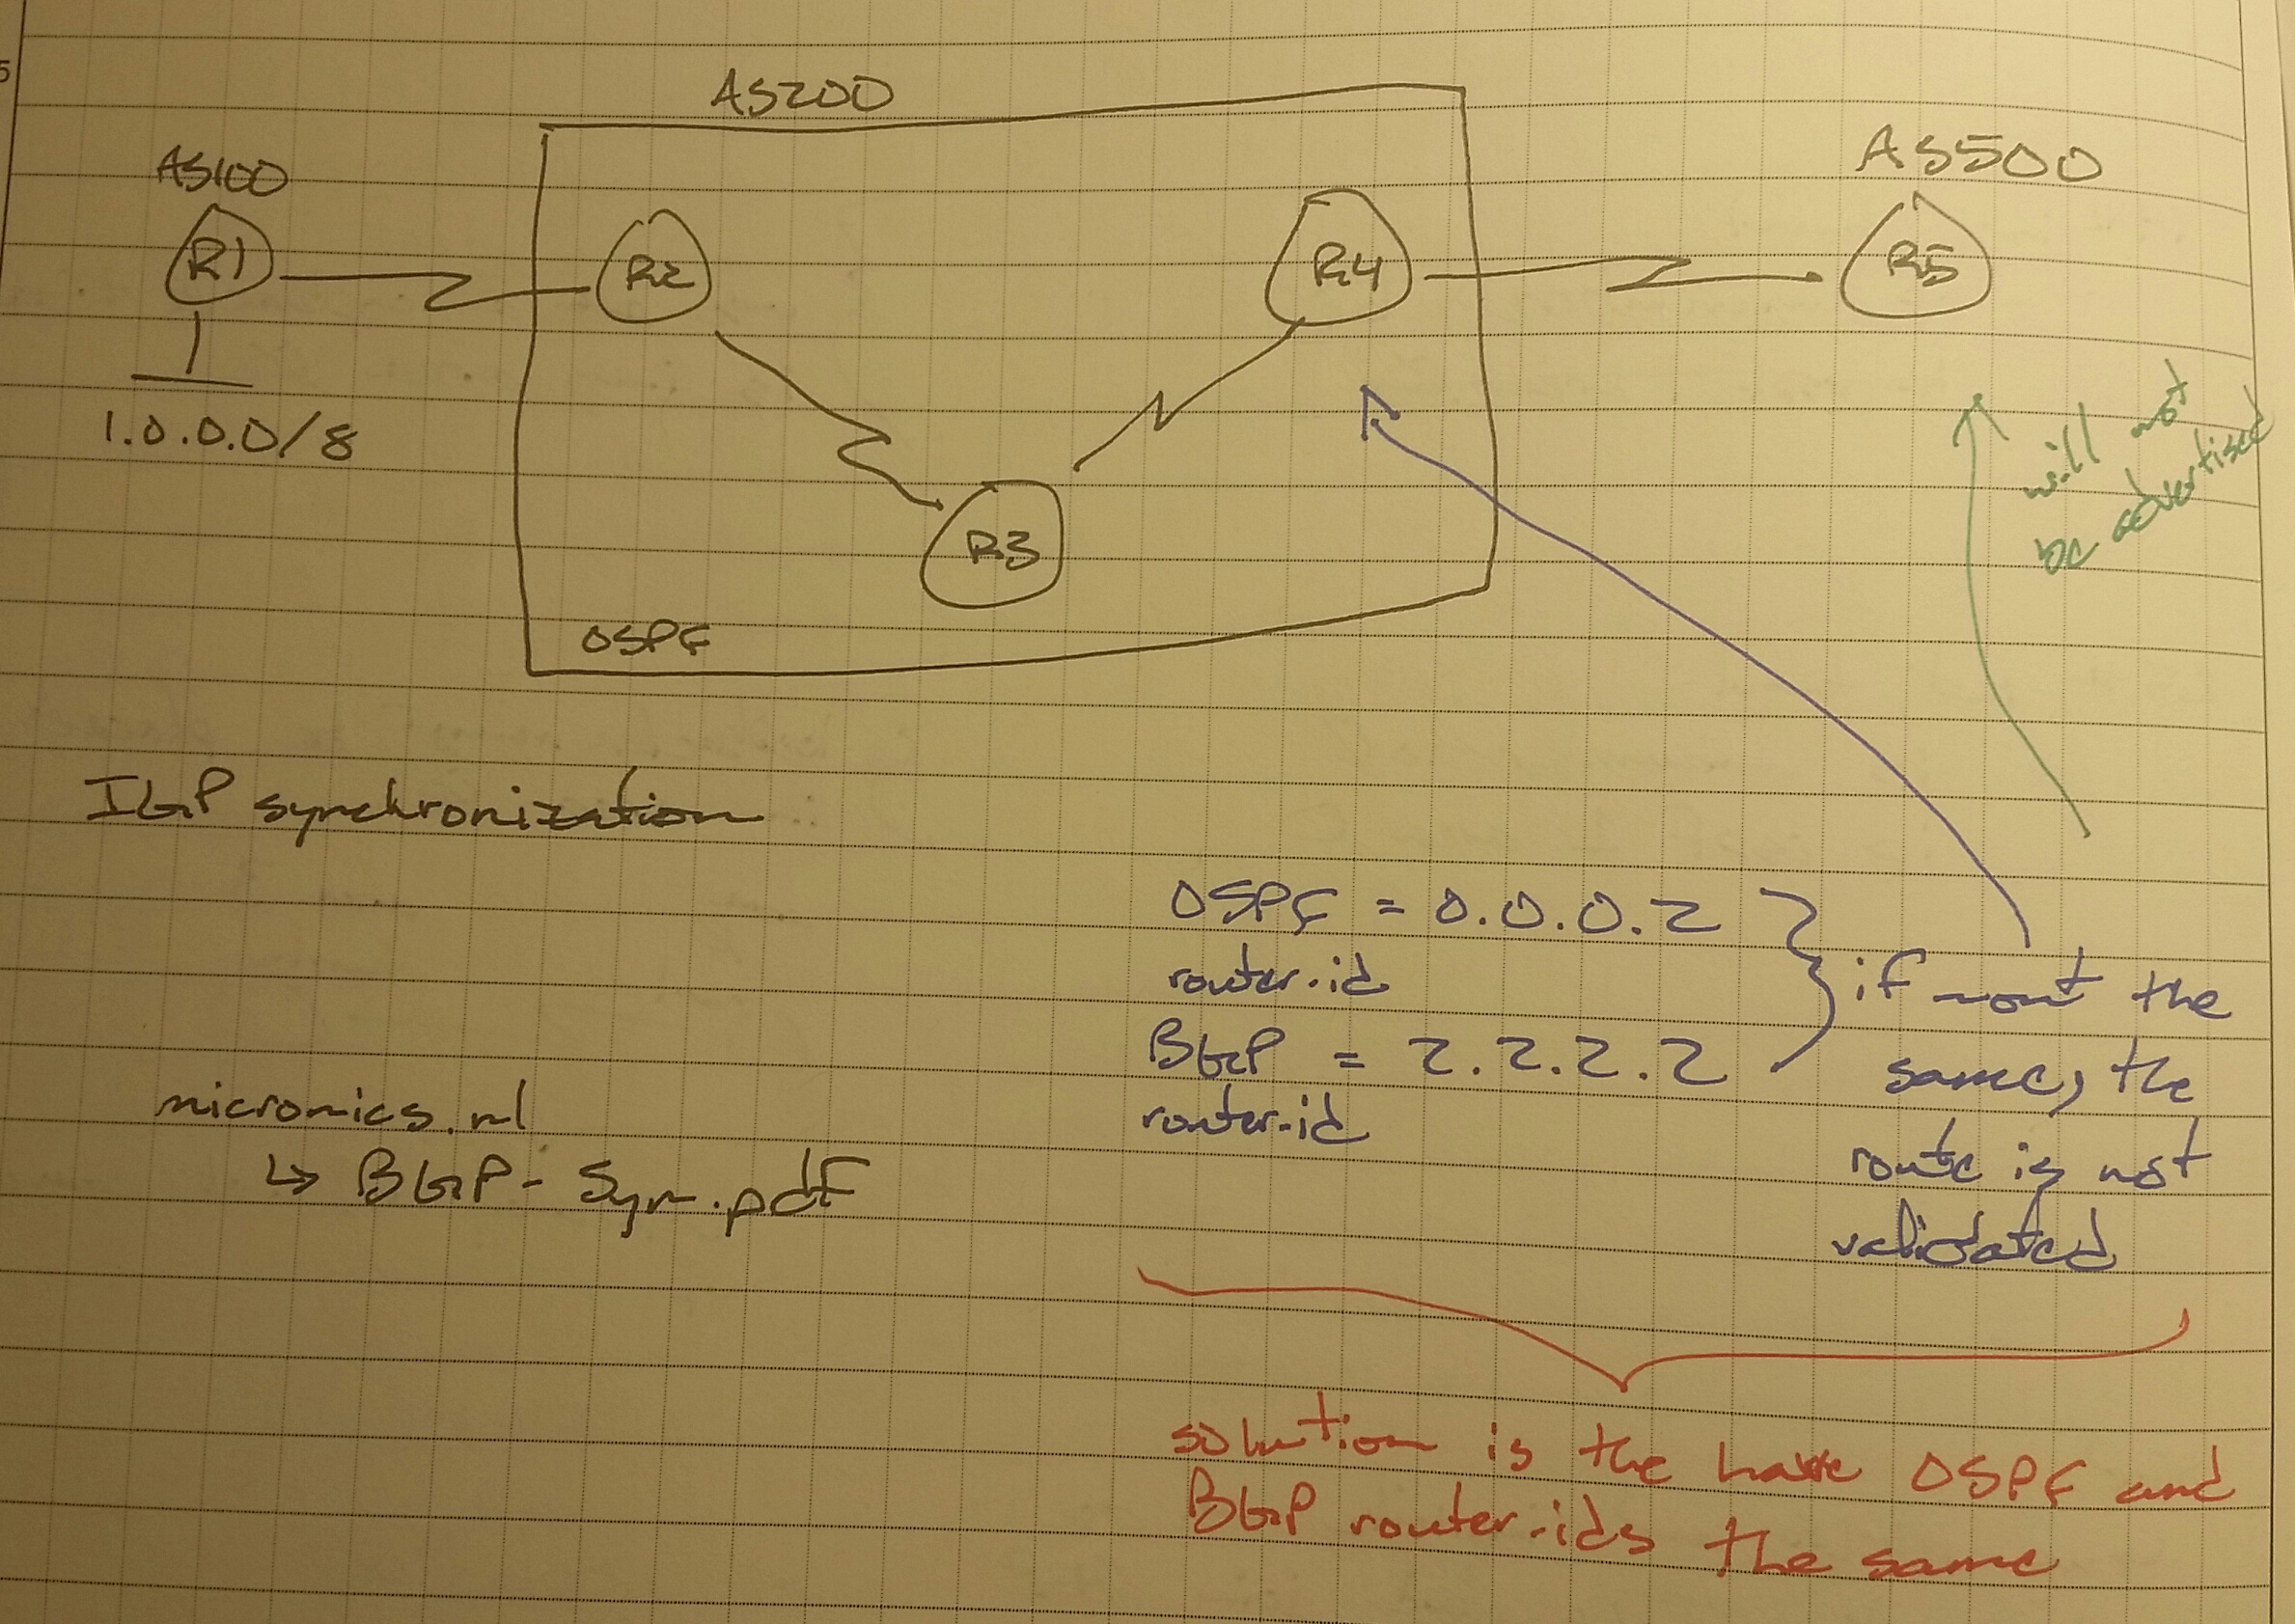 5
AS200
AS100
AS500
R1
R2
R4
R5
1.0.0.0/8
R3
OSPF
will not
be advertised
IGP synchronization
OSPF = 0.0.0.2
router-id
BGP = 2.2.2.2
router-id
if not the
same, the
route is not
validated
micronics.nl
↳ BGP-Syn.pdf
solution is the have OSPF and
BGP router-ids the same